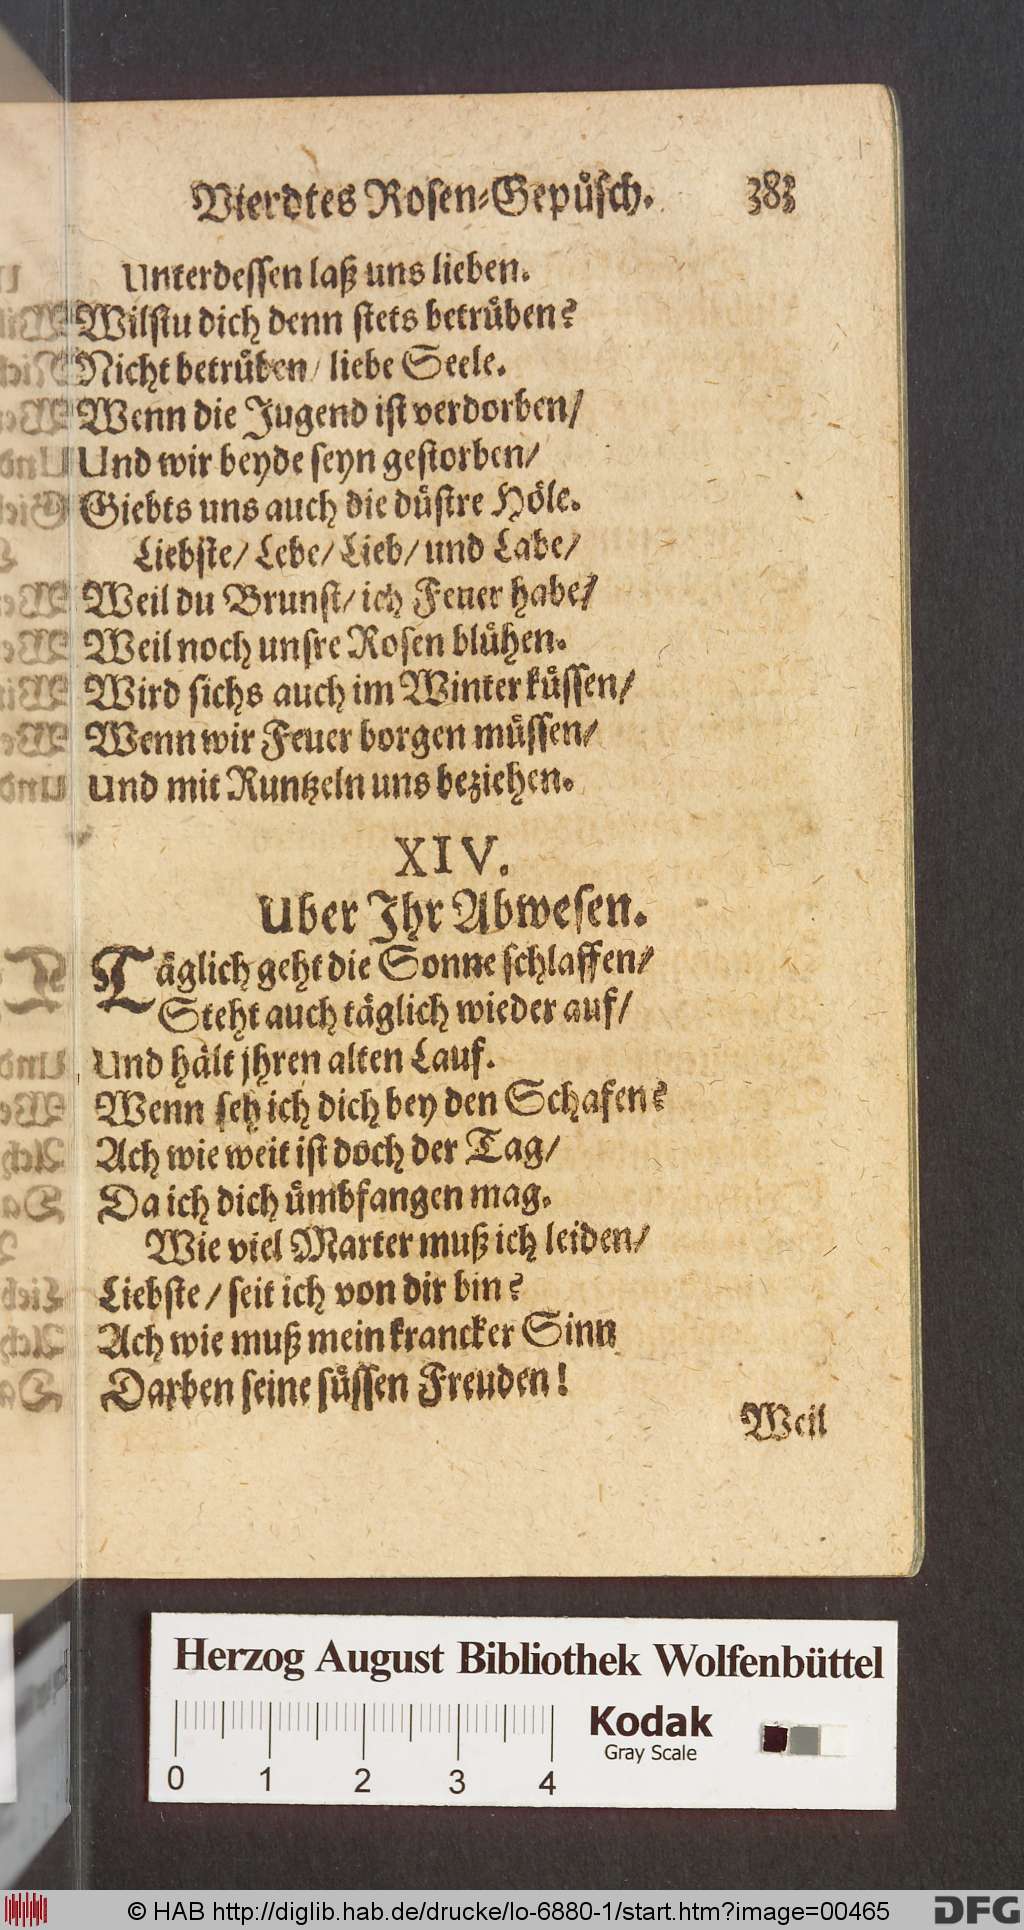 Vierdtes Rosen-Gepuͤsch. 383
Unterdessen laß uns lieben.
Wilstu dich denn stets betruͤben?
Nicht betruͤben/ liebe Seele.
Wenn die Jugend ist verdorben/
Und wir beyde seyn gestorben/
Giebts uns auch die duͤstre Hoͤle.
Liebste/ Lebe/ Lieb/ und Labe/
Weil du Brunst/ ich Feuer habe/
Weil noch unsre Rosen bluͤhen.
Wird sichs auch im Winter kuͤssen/
Wenn wir Feuer borgen muͤssen/
Und mit Runtzeln uns beziehen.
XIV.
Uber Ihr Abwesen.
Taͤglich geht die Sonne schlaffen/
Steht auch taͤglich wieder auf/
Und haͤlt jhren alten Lauf.
Wenn seh ich dich bey den Schafen?
Ach wie weit ist doch der Tag/
Da ich dich uͤmbfangen mag.
Wie viel Marter muß ich leiden/
Liebste/ seit ich von dir bin?
Ach wie muß mein krancker Sinn
Darben seine suͤssen Freuden!
Weil
Herzog August Bibliothek Wolfenbüttel
0 1 2 3 4
Kodak
Gray Scale
© HAB http://diglib.hab.de/drucke/lo-6880-1/start.htm?image=00465
DFG